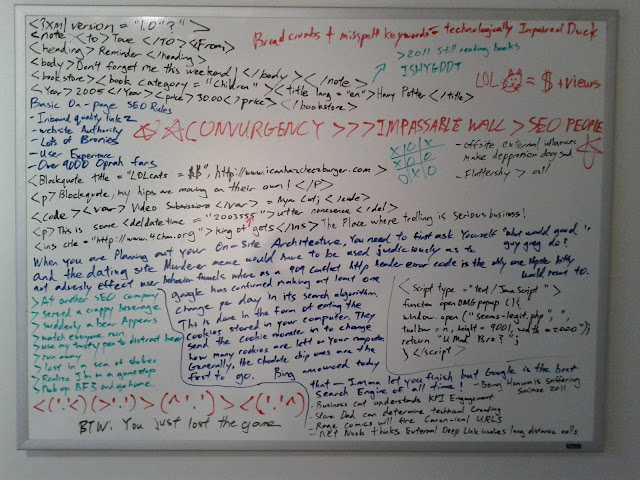 <?xml version = "1.0"?>
<note> <to> Tove </TO> <From>
<heading> Reminder </heading>
<body> Don't forget me this weekend! </body> </note>
<bookstore> <book category = "Children"> <title lang = "en"> Harry Potter </title>
<Year> 2005 </Year> <price> 30.00 <?price> </bookstore>
Bread crumbs + misspelt keywords = technologically Impaired Duck
> 2011 still reading books
ISHYGDDT
LOL = $ + views
Basic On-page SEO Rules
- Inbound quality links
- website Authority
- Lots of Bronies
- User Experience
- Over 9000 Oprah fans
CONVURGENCY >>> IMPASSABLE WALL > SEO PEOPLE
X O X
X O O
O X O
- offsite, external influences
make depression dog sad.
- Fluttershy > all
<Blockquote title = "LOLcats = $$", http://www.icanhazcheezburger.com>
<p> Blockquote, my hips are moving on their own! </P>
<code> <var> Video Submissions </var> = Nyan Cat; </code>
<p> This is some <del datetime = "2003555"> utter nonsense </del>
<ins cite = "http://www.4chan.org"> king of gets </ins> The Place where trolling is serious business!
When you are Planning out your On-Site Architecture, You need to first ask yourself "what would good guy greg do?"
and the dating site Murderer meme would have to be used judiciously as to
not adversely effect user behavior funnels where as a 409 Conflict http header error code is the only one Hipster Kitty would react to.
google has confirmed making at least one
change per day in its search algorithm.
This is done in the form of eating the
Cookies stored in your computer. They
send the cookie monster in to change
how many cookies are left on your computer.
Generally, the chocolate chip ones are the
first to go. Bing announced today
that - Imma let you finish but Google is the best
Search Engine of all time!
> At another SEO company
> served a crappy beverage
> Suddenly a bear Appears
> watch everyone run
> use my trusty pen to distract bear
> run away
> lost in a sea of
> Realize I'm in a gameshop
> Pick up BF3 and go home.
<script type = "text/JavaScript">
function openOMGpopup () {
window.open ("seems-legit.php", ",
toolbar = n, height = 9001, width = 2000");
return "U Mad Bro?";
} </script>
- Being Hanuman is suffering since 2011
- Business cat understands KPI Engagement
- Stare Dad can determine technical crawling
- Rage comics will fix Canonical URLs
- Net Noob thinks External Deep Link involves long distance calls.
<('.'<) (>'.')> (^'.'^) > <('.'^)
BTW: You just lost the game